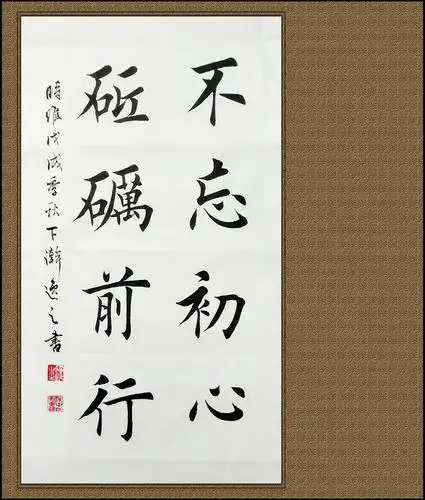 不忘初心
砥礪前行
時維戊戌季秋下瀚逸之書